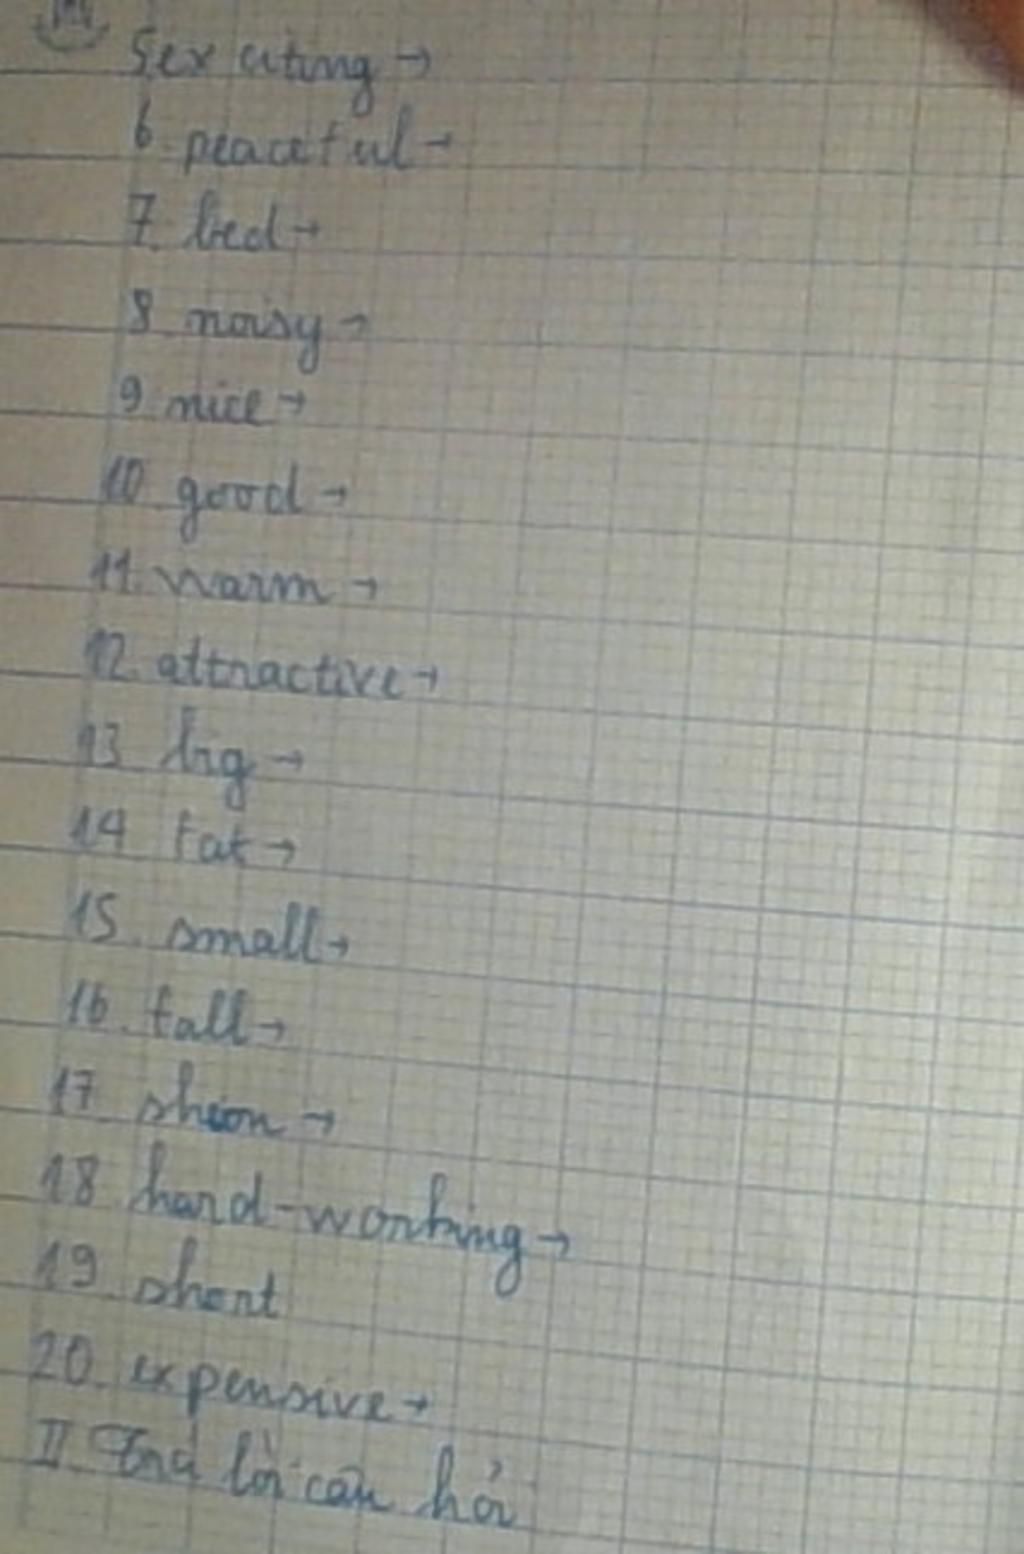 5 exciting →
6. peaceful →
7. bed →
8 noisy →
9 nice →
10 good →
11. warm →
12. attractive →
13 big →
14 fat →
15. small →
16. tall →
17 →
18 hard-working →
19. short
20. expensive →
II Trả lời câu hỏi